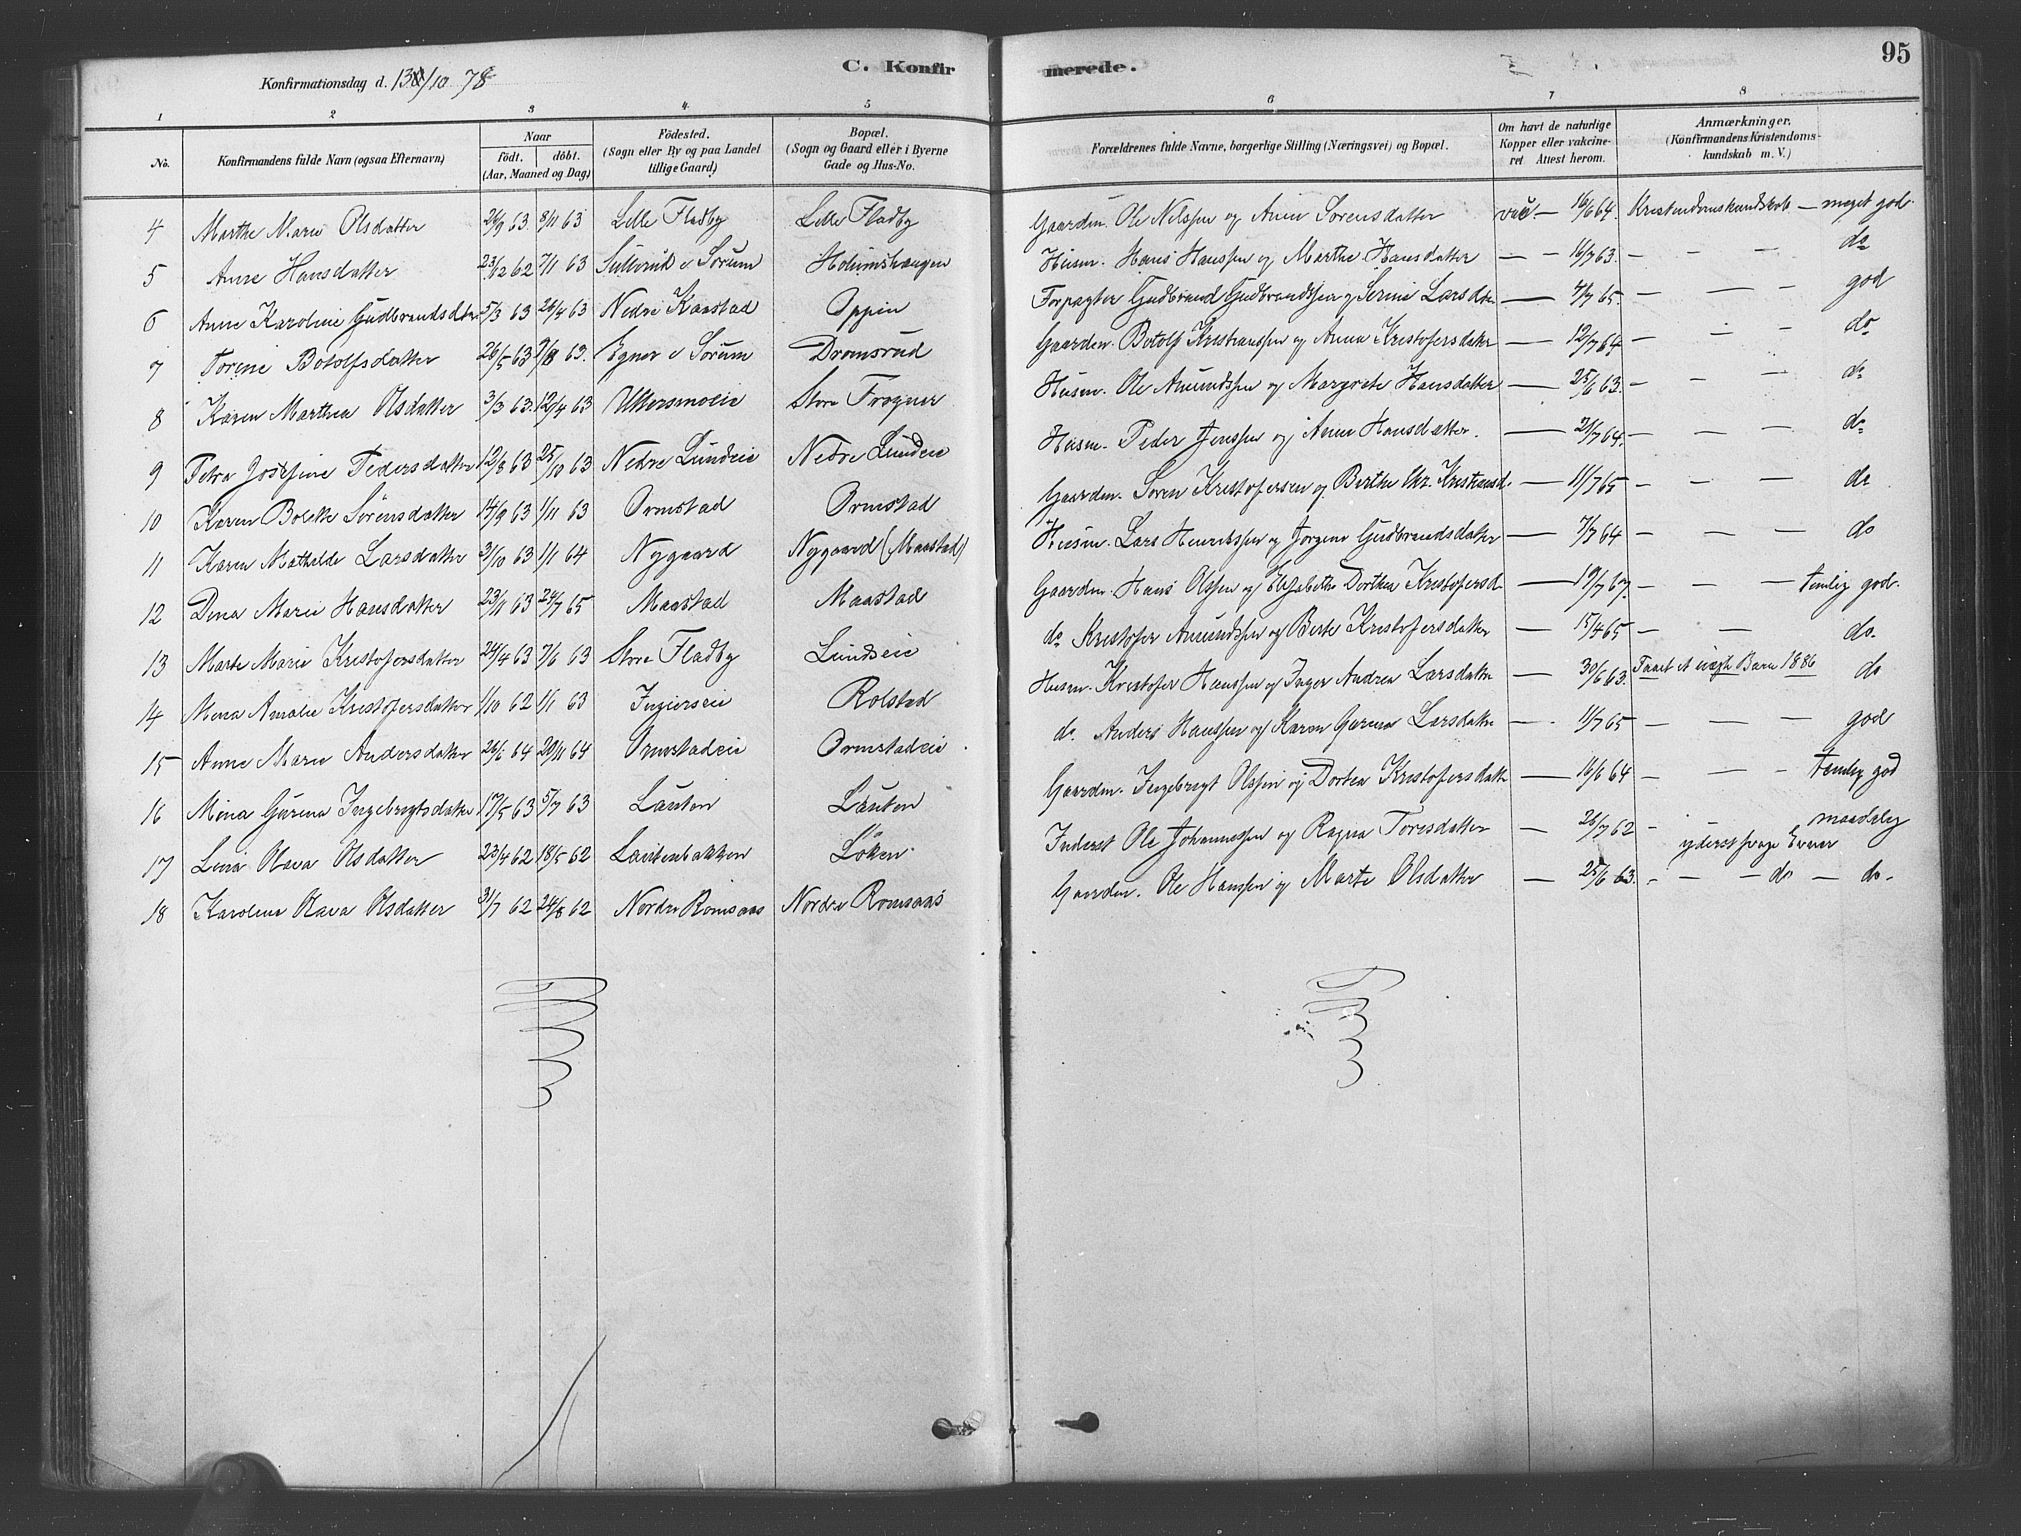 95
Konfirmationsdag d. 13/10 78
C. Konfirmerede.
1 2 3 4 5 6 7 8
No. Konfirmandens fulde Navn (ogsaa Efternavn) Naar født. døbt. (Aar, Maaned og Dag) Fødested. (Sogn eller By og paa Landet tillige Gaard) Bopæl. (Sogn og Gaard eller i Byerne Gade og Hus-No. Forældrenes fulde Navne, borgerlige Stilling (Næringsvei) og Bopæl. Om havt de naturlige Kopper eller vakcineret Attest herom. Anmærkninger. (Konfirmandens Kristendomskundskab m. V.)
4 Marthe Marie Olsdatter 26/9 63 8/11 63 Lille Fladby Lille Fladby Gaardm. Ole Nilssen og Anne Sørensdatter vac — 16/6 64 Kristendomskundskab — meget god.
5 Anne Hansdatter 23/12 62 7/1 63 i Sørum Holumshaugen Husm. Hans Hanssen og Marthe Hansdatter — — 16/7 63. — — — do
6 Anne Karoline Gudbrandsdtr 5/3 63 26/4 63 Nedre Kaastad Oppen Forpagter Gudbrand Gudbrandssen og Larsdtr — 4/7 65. — — — god
7 Torine Botolfsdatter 26/5 63 9/8 63. Egner i Sørum Dromsrud Gaardm. Botolf Kristianssen og Anna Kristofersdatter — 12/7 64 — — — do
8 Karen Marthea Olsdatter 3/3 63. 12/4 63 Store Frogner Husm. Ole Amundssen og Margrete Hansdatter — 25/6 63. — — — do
9 Petra Josefine Pedersdatter 12/8 63 25/10 63 Nedre Lundeie Nedre Lundeie Husm. Peder Jenssen og Anne Hansdatter. — 21/7 64. — — — do
10 Karen Bolette Sørensdatter 14/9 63 1/11 63 Ormstad Ormstad Gaardm. Søren Kristofersen og Berthe Kristiansd. — 11/7 65 — — — do
11 Karen Mathilde Larsdatter 3/10 63 1/1 64 Nygaard Nygaard (Maastad) Husm. Lars Henrikssen og Jørgine Gudbrandsdatter — 7/7 64 — — — do
12 Dina Marie Hansdatter 23/11 63 24/7 65 Maastad Maastad Gaardm. Hans Olssen og Elisabeth Dorthea Kristofersd. — 19/7 67. — — — temlig god.
13 Marte Marie Kristofersdatter 24/4 63 7/6 63 Store Fladby Lundseie do Kristofer Amundssen og Berte Kristofersdatter — 15/4 65 — — do.
14 Mina Amalie Kristofersdatter 1/10 62 1/1 63 Ingierseie Rolstad Husm. Kristofer Hanssen og Inger Andrea Larsdatter — 30/6 63. Faaet et uægte Barn 1886 do
15 Anne Marie Andersdatter 26/6 64 20/11 64 Ormstadeie Ormstadeie. do. Anders Hanssen og Karen Gurina Larsdatter — 11/7 65 — — — god
16 Mina Gurina Ingebregtsdatter 17/5 63 5/7 63 Lauten Lauten Gaardm. Ingebregt Olssen og Dortea Kristofersdatter — 16/6 64 — — — temlig god
17 Lina Olava Olsdatter 23/4 62 18/5 62 Lautenbakken Løken Inderst Ole Johannessen og Ragna Toresdatter — 26/7 62 — yderst svage Evner maadelig
18 Karolina Olava Olsdatter 31/7 62 24/8 62 Nordre Romsaas Nordre Romsaas Gaardm. Ole Hanssen og Marte Olsdatter — 25/6 63. — — — do — do.